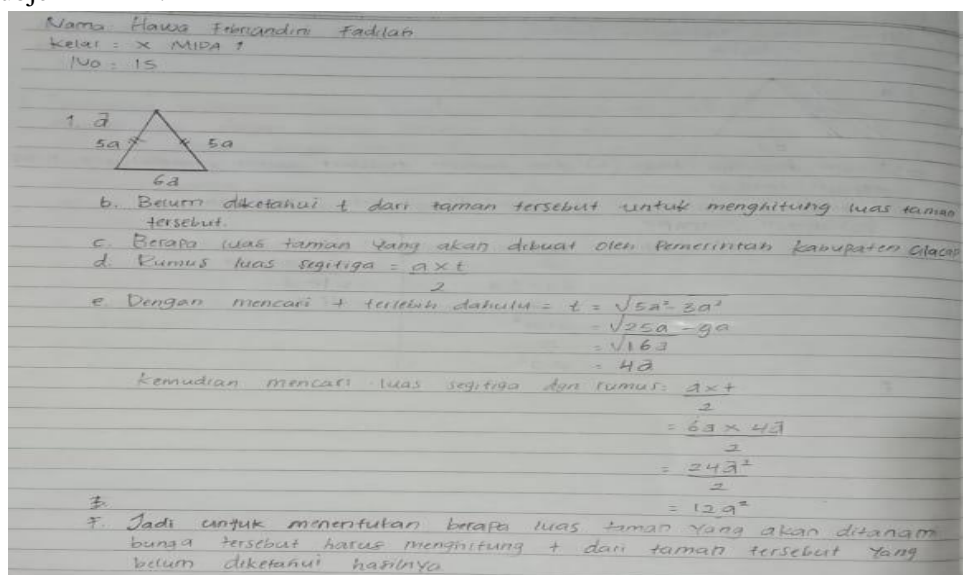 Nama Hawa Febriandini Fadilah
Kelas = X MIPA 1
No = 15
1. a
5a 5a
6a
b. Belum diketahui t dari taman tersebut untuk menghitung luas taman
tersebut.
c. Berapa luas taman yang akan dibuat oleh Pemerintah Kabupaten Cilacap
d. Rumus luas segitiga = a x t
2
e. Dengan mencari t terlebih dahulu = t = √5a² - 3a²
= √25a - 9a
= √16a
= 4a
Kemudian mencari luas segitiga dgn rumus: a x t
2
= 6a x 4a
2
= 24a²
2
= 12a²
F. Jadi untuk menentukan berapa luas taman yang akan ditanam
bunga tersebut harus menghitung t dari taman tersebut yang
belum diketahui hasilnya